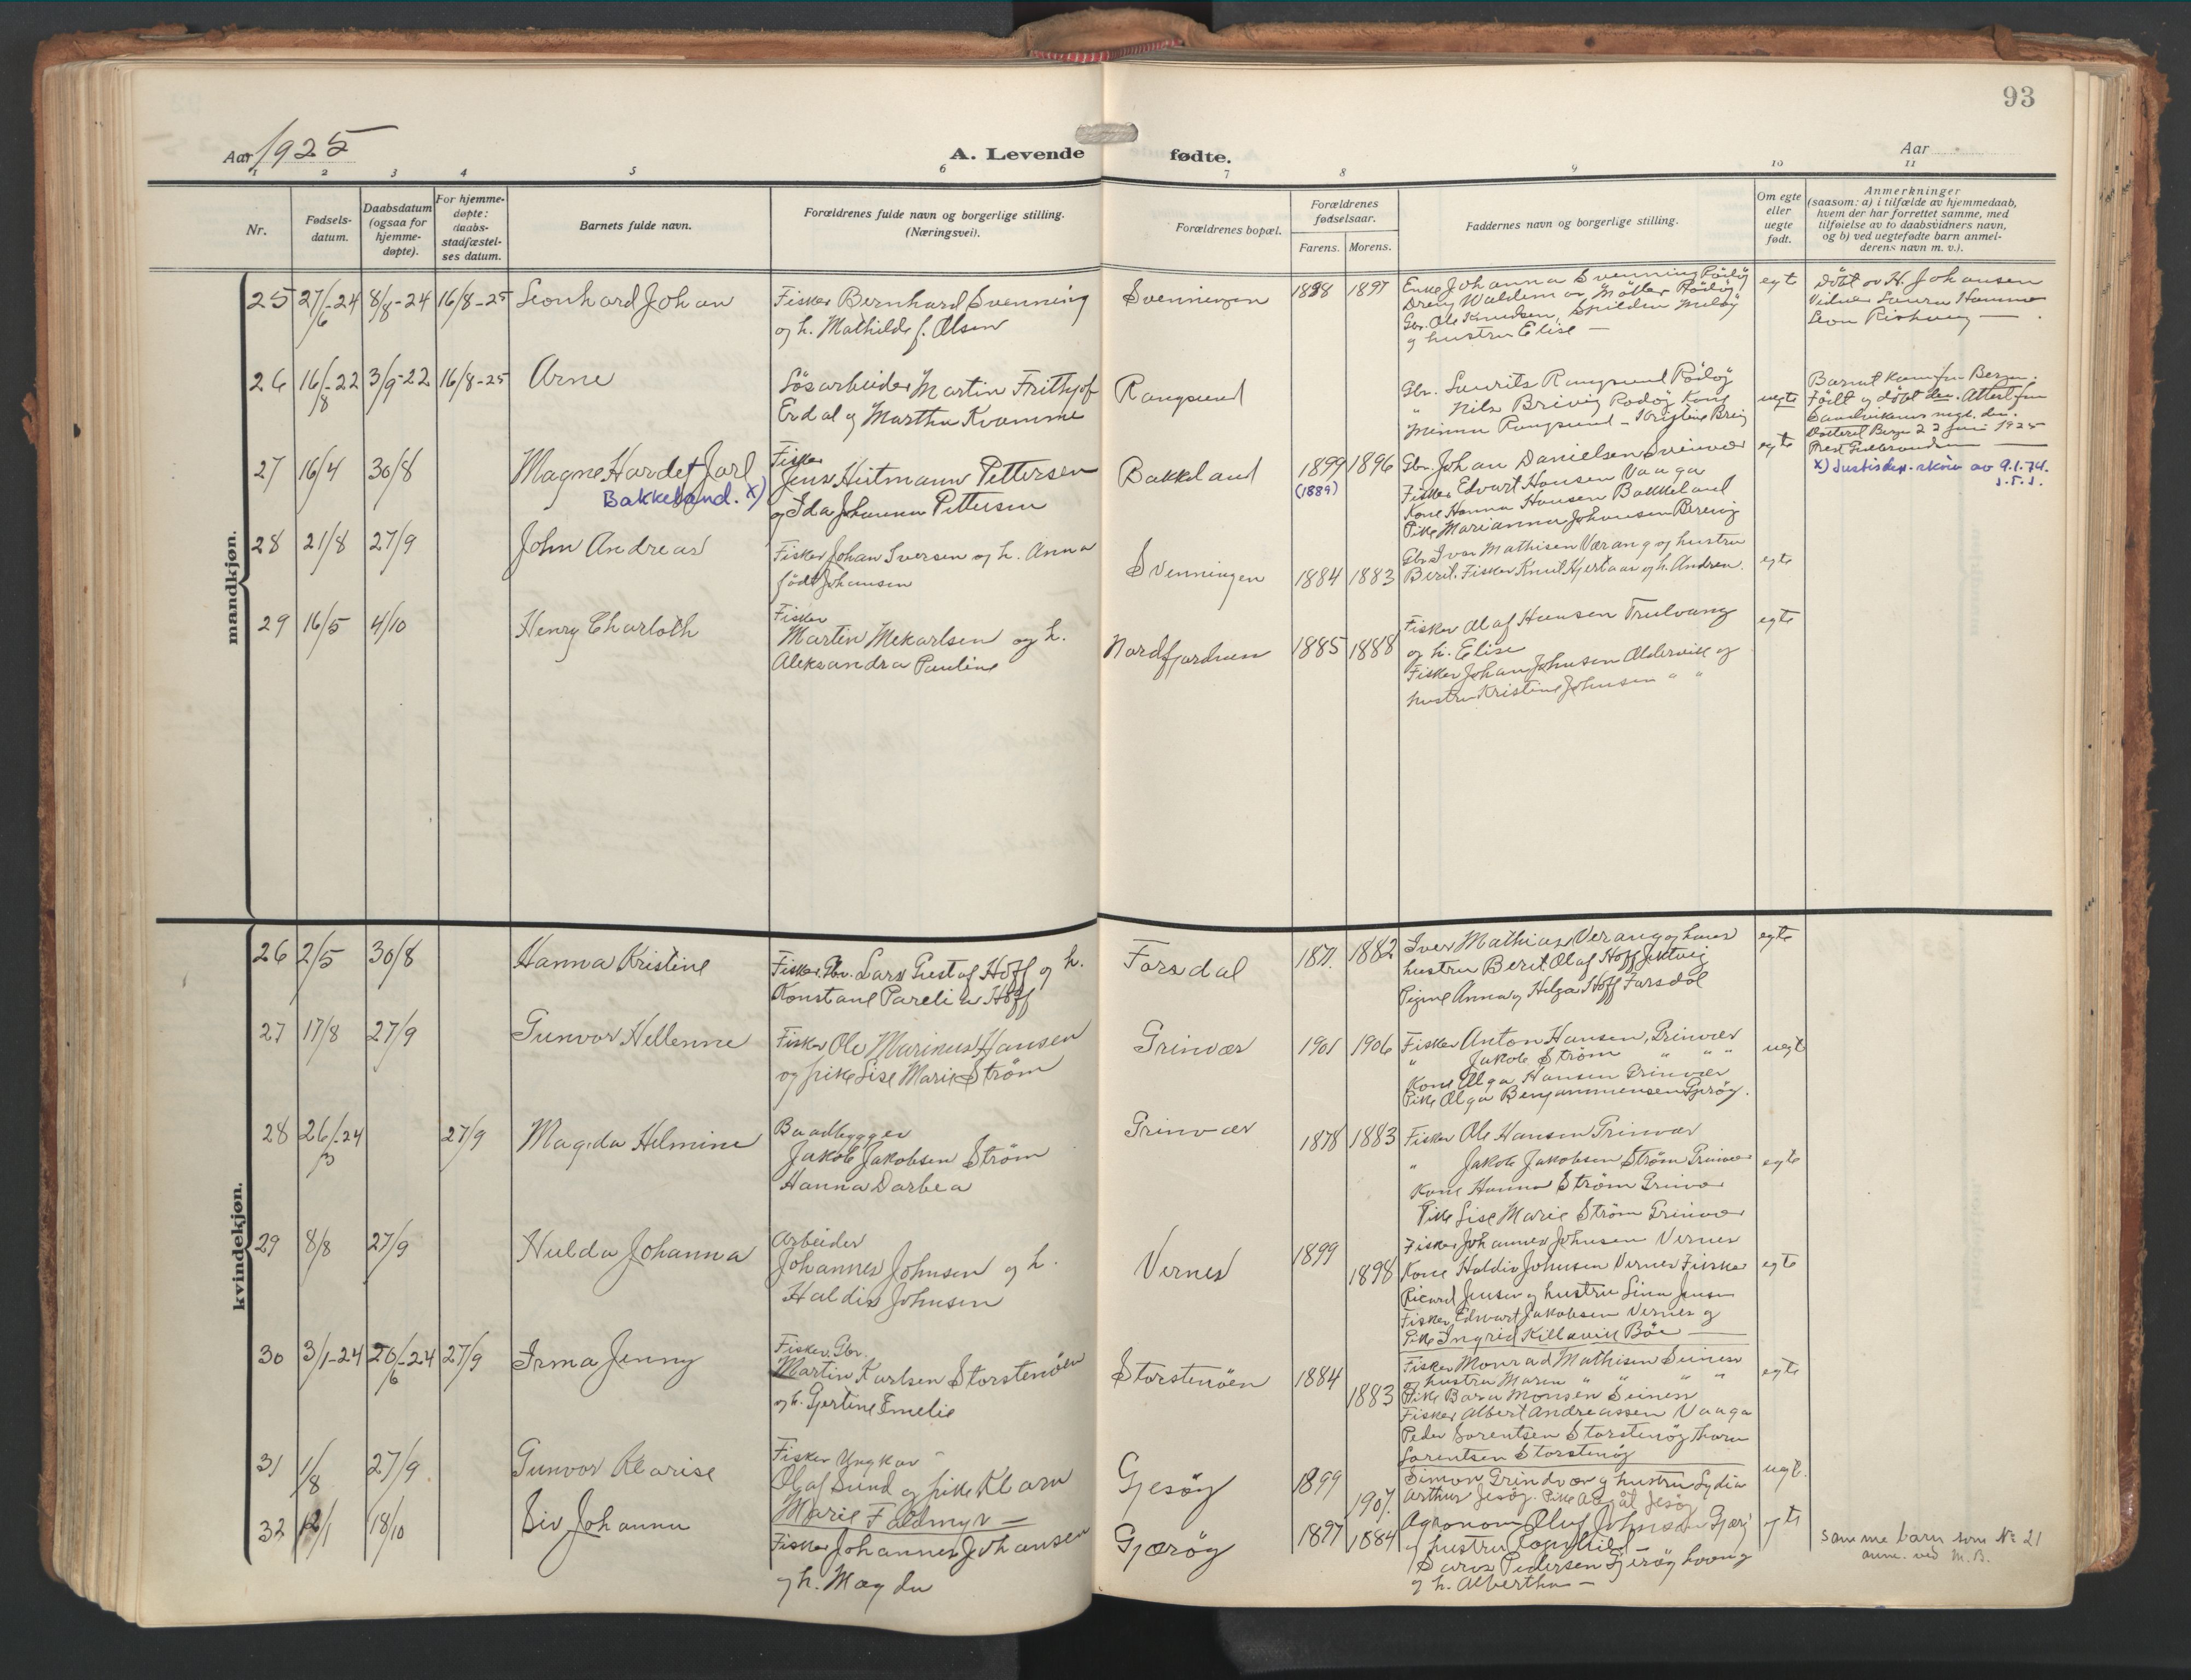 93
Aar 1925
A. Levende fødte.
Aar
1 2 3 4 5 6 7 8 9 10 11
Nr.
Fødsels-
datum.
Daabsdatum
(ogsaa for
hjemme-
døpte).
For hjemme-
døpte:
daabs-
stadfæstel-
ses datum.
Barnets fulde navn.
Forældrenes fulde navn og borgerlige stilling.
(Næringsvei).
Forældrenes bopæl.
Forældrenes
fødselsaar.
Farens. Morens.
Faddernes navn og borgerlige stilling.
Om egte
eller
uegte
født.
Anmerkninger
(saasom: a) i tilfælde av hjemmedaab,
hvem der har forrettet samme, med
tilføielse av to daabsvidners navn,
og b) ved uegtefødte barn anmel-
derens navn m. v.).
mandkjøn.
25 27/6-24 8/8-24 16/8-25 Leonhard Johan
Fisker Bernhard Svenning
og h. Mathilde f. Olsen
Svenningen 1898 1897
Enke Johanna Svenning Rödöy
Dreng Waldemar Möller Rödöy
Gbr. Ole Knudsen, Spilden Melöy
og hustru Elise —
egte
Döbt av H. Johansen
Vidner Laura Hammer
Leon —
26 16/8-22 3/9-22 16/8-25 Arne
Lösarbeider Martin Frithjof
Erdal og Martha Kvamme
Rangsund
Gbr. Laurits Rangsund Rödöy
" Nils Brivig Rodöy Kone
Minna Rangsund - Kristine Breiv
uegte
Barnet kom fra Bergen.
Født og döbt der. Attest fra
Sandvikens mgt. der.
Datteret Bergen 22 juni 1925
27 16/4 30/8 Magne Hardet Jarl
Bakkeland. x)
Fisker
Jens Heitmann Pettersen
og Ida Johanna Pettersen
Bakkeland 1899 1896
(1889)
Gbr. Johan Danielsen Svinvær
Fisker Edvart Hansen Vaaga
Kone Hanna Hansen Bakkeland
Pike Marianna Johansen Breivig
egte
x) Justisdep. skriv av 9.1.74.
28 21/8 27/9 John Andreas
Fisker Johan Iversen og h. Anna
født Johansen
Svenningen 1884 1883
Gbr Iver Mathisen Værang og hustru
Berit. Fisker Knut Hjertaas og h. Andrea.
egte
29 16/5 4/10 Henry Charloth
Fisker
Martin Mekarlsen og h.
Aleksandra Pauline
Nordfjordnes 1885 1888
Fisker Olaf Hansen Trulvang
og h. Elise
Fisker Johan Johnsen Aldervik og
hustru Kristine Johnsen " "
egte
kvindekjøn.
26 2/5 30/8 Hanna Kristine
Fisker. Gbr. Lars Gustaf Hoff og h.
Konstanse Pareli a Hoff
Forsdal 1871. 1882
Iver Mathias Verang og hans
hustru Berit. Olaf Hoff Jektvig
Pigene Anna og Helga Hoff Farsdal
egte
27 17/8 27/9 Gunvor Hellenne
Fisker Ole Marinus Hansen
og pike Lise Marie Strøm
Grinvær 1901 1906
Fisker Anton Hansen, Grinvær
" Jakob Strøm " " "
Kone Olga Hansen Grinvær
Pike Olga Benjaminensen Gjerøy.
uegt
28 26/3-24 27/9 Magda Helmine
Baadbygger
Jakob Jakobsen Strøm
Hanna Darbea
Grinvær 1878 1883
Fisker Ole Hansen Grinvær
" Jakob Jakobsen Strøm Grinvær
Kone Hanna Strøm Grinvær
Pike Lise Marie Strøm Grinvær
egte
29 8/8 27/9 Hulda Johanna
Arbeider
Johannes Johnsen og h.
Haldis Johnsen
Vernes 1899 1898
Fisker Johannes Johnsen Vernes
Kone Haldis Johnsen Vernes Fisker
Ricard Jensen og hustru Lina Jensen
Fisker Edvart Jakobsen Vernes og
Pike Ingrid Killavik Böe —
egte
30 3/1-24 20/6-24 27/9 Irma Jenny
Fisker. Gbr.
Martin Karlsen Storstenöen
og h. Gjertine Emelie
Storstenöen 1884 1883
Fisker Monrad Mathisen Seines
og hustru Maren " " " "
Pike Bara Monsen Seines
Fisker Albert Andreassen Vaaga
Peder Lorentsen Storstenöy Thora
Lorentsen Storstenöy
egte
31 1/8 27/9. Gunvor Klarise
Fisker Ungkar
Olaf Sund og pike Klara
Marie Faldmyr —
Gjesøy 1899 1907.
Simon Grindvær og hustru Lydia
Arthur Jesöy. Pike Aagåt Jesöy
uegt.
32 12/1 18/10 Siv Johanna
Fisker Johannes Johansen
og h. Magda
Gjærøy 1897 1884
Agronom Oluf Johnsen Gjerøy
og hustru Ragnhild
Lars Pedersen Gjerøy
og h. Albertha —
egte
samme barn som No 21
anm. ved M.B.